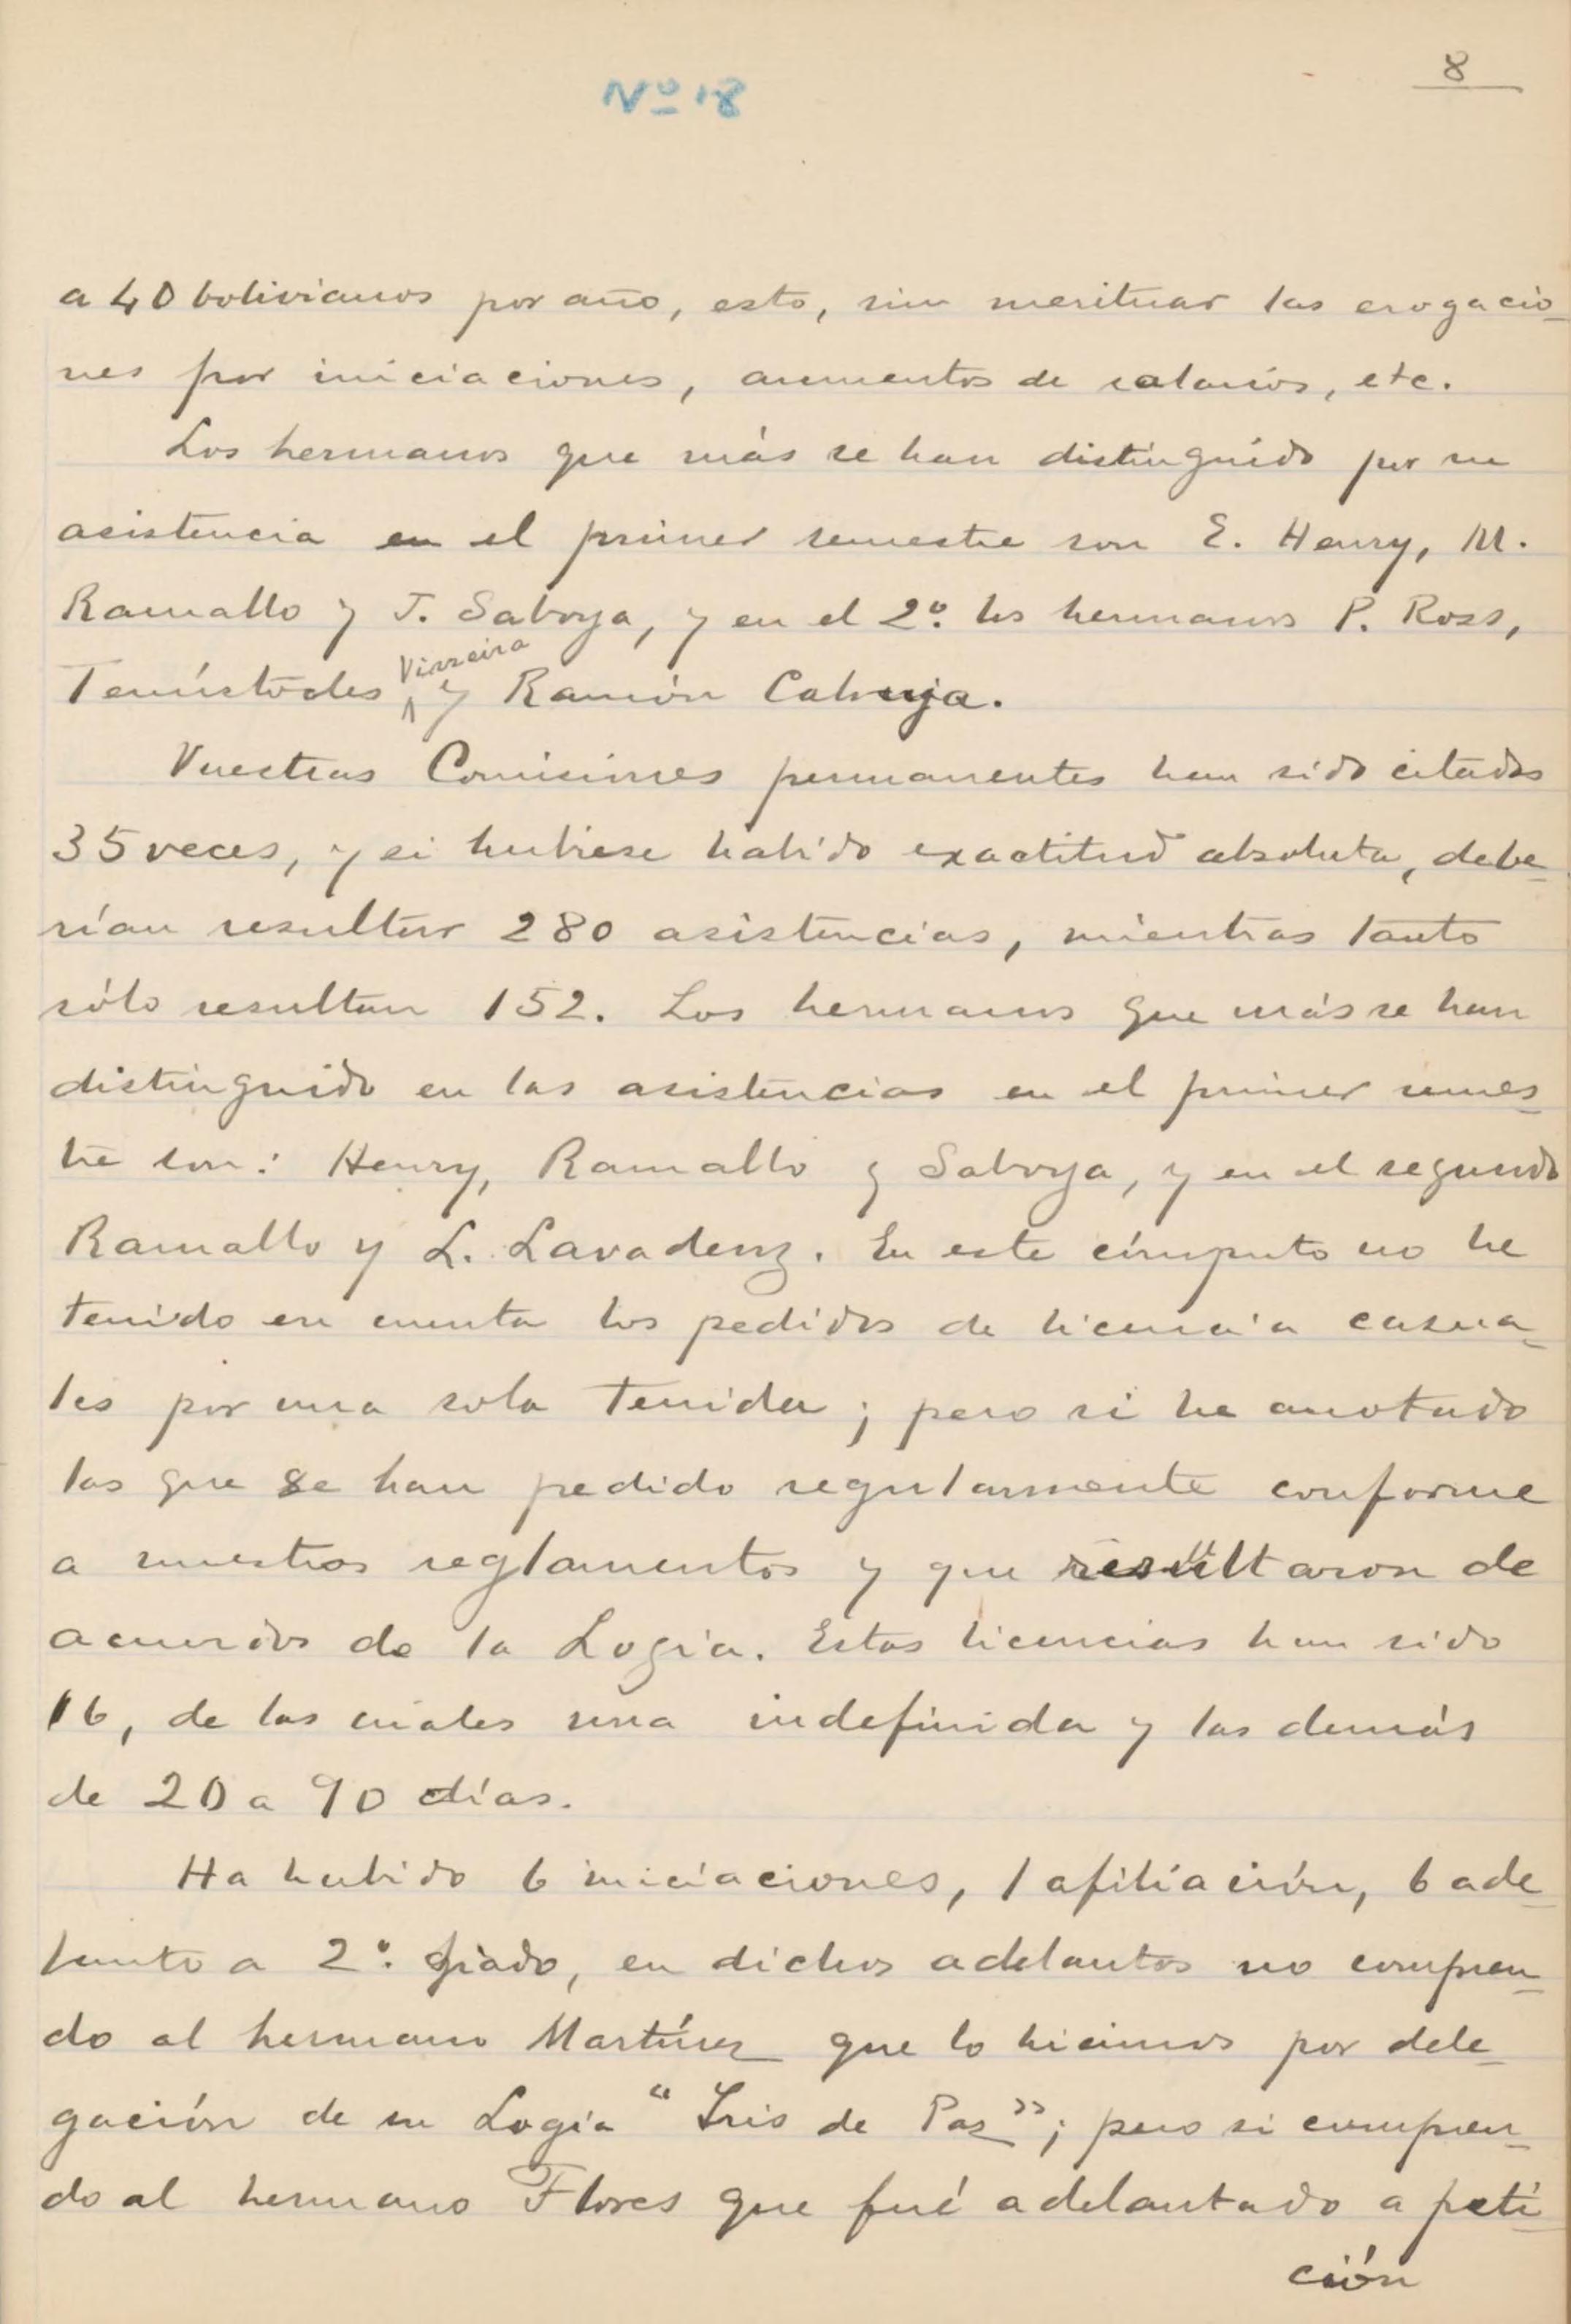 8
Nº 18
a 40 bolivianos por año, esto, sin merituar las erogacio-
nes por iniciaciones, aumentos de salarios, etc.
Los hermanos que más se han distinguido por su
asistencia en el primer semestre son E. Henry, M.
Ramallo y J. Saboya, y en el 2º. los hermanos P. Ross,
Vizzeira
Temístocles y Ramón Cabruja.
Vuestras Comisiones permanentes han sido citadas
35 veces, y si hubiese habido exactitud absoluta, debe-
rían resultar 280 asistencias, mientras tanto
sólo resultan 152. Los hermanos que más se han
distinguido en las asistencias en el primer semes-
tre son: Henry, Ramallo y Saboya, y en el segundo
Ramallo y L. Lavadenz. En este cómputo no he
tenido en cuenta los pedidos de licencia casua-
les por una sola tenida; pero si he anotado
las que se han pedido regularmente conforme
a nuestros reglamentos y que resultaron de
acuerdos de la Logia. Estas licencias han sido
16, de las cuales una indefinida y las demás
de 20 a 90 días.
Ha habido 6 iniciaciones, 1 afiliación, 6 ade-
lanto a 2º. grado, en dichos adelantos no compren-
do al hermano Martínez que lo hicimos por dele-
gación de su Logia "Iris de Paz"; pero si compren-
do al hermano Flores que fué adelantado a peti-
ción